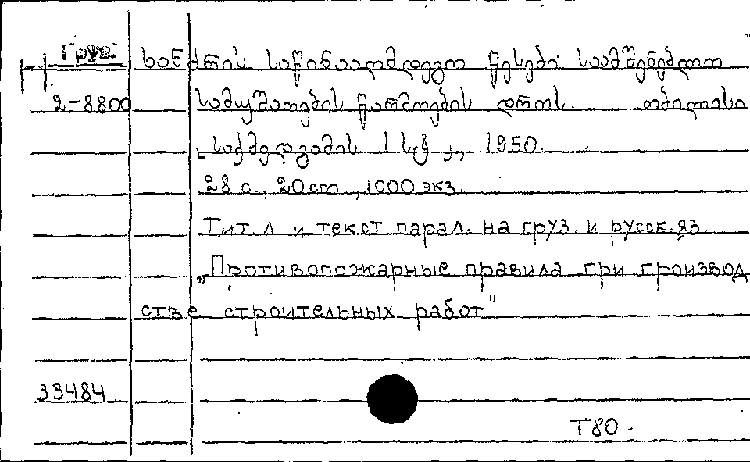 Груз. ხანძრის საწინააღმდეგო წესები სამშენებლო
2-8800 სამუშაოების წარმოების დროს. თბილისი
1950.
28 с., 20 cm, 1000 экз.
Тит. л. и текст парал. на груз. и русск. яз.
„Противопожарные правила при производ
стве строительных работ"
33484
Т80.